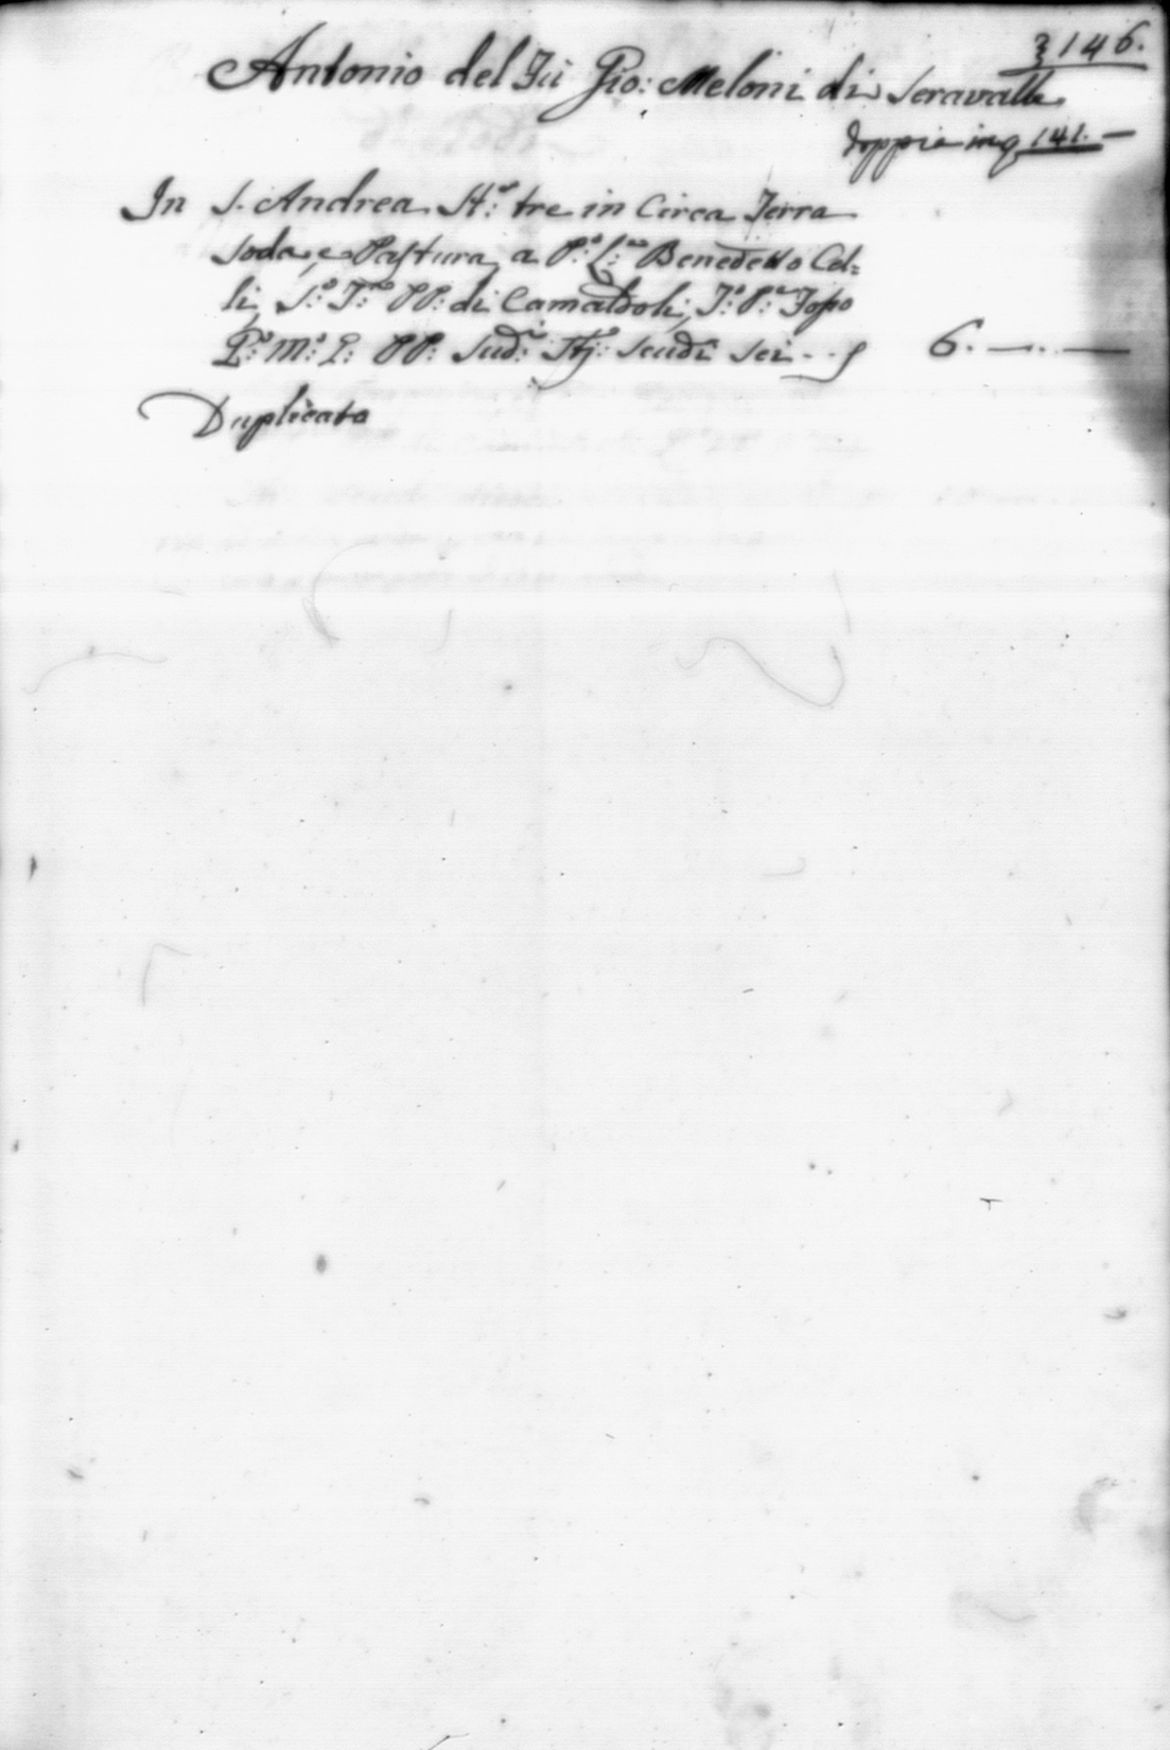 146.
Antonio del Fù Gio: Meloni di Seravalle
doppia in q 141. —
In S. Andrea St:ª tre in Circa Terra
Soda, e Pastura, a P:º L:ᵐ Benedetto Cel=
li, S:º T:ᵐº PP: di Camaldoli, T:º P:ª Fosso
P:º M:º L: PP: Sud:ⁱ Stj:º Scudi Sei - - ∫ 6. — . . —
Duplicato